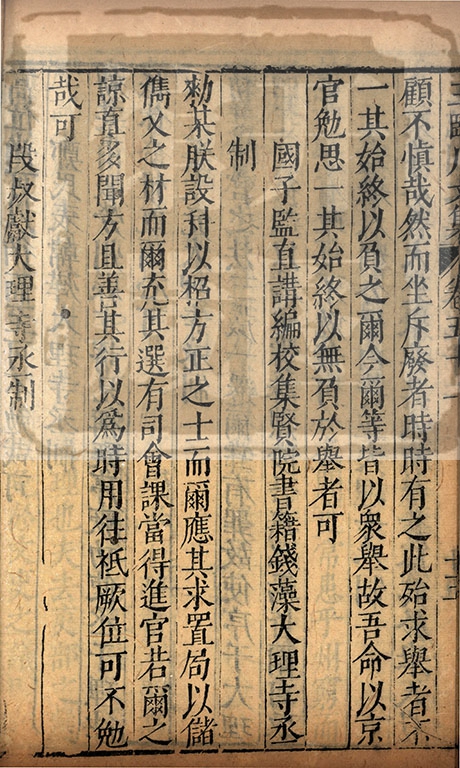 顧不慎哉然而坐斥廢者時時有之此殆求舉者不
一其始終以負之爾今爾等皆以衆舉故吾命以京
官勉思一其始終以無負於舉者可
國子監直講編校集賢院書籍錢藻大理寺丞
制
勑某朕設科以招方正之士而爾應其求置局以儲
儁乂之材而爾充其選有司會課當得進官若爾之
諒直多聞方且善其行以爲時用往祇厥位可不勉
哉可
段叔獻大理寺丞制